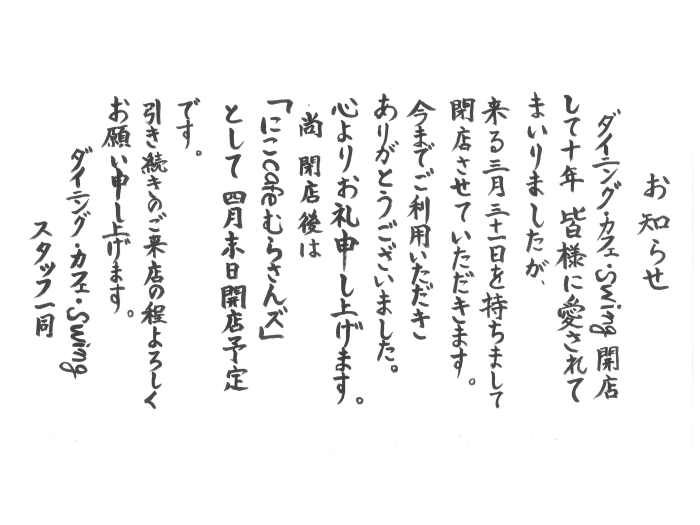 お知らせ
ダイニング・カフェ・Swing 開店
して十年 皆様に愛されて
まいりましたが、
来る三月三十一日を持ちまして
閉店させていただきます。
今までご利用いただき
ありがとうございました。
心よりお礼申し上げます。
尚 閉店後は
「にこcafeむらさんズ」
として 四月末日開店予定
です。
引き続きのご来店の程よろしく
お願い申し上げます。
ダイニング・カフェ・Swing
スタッフ一同